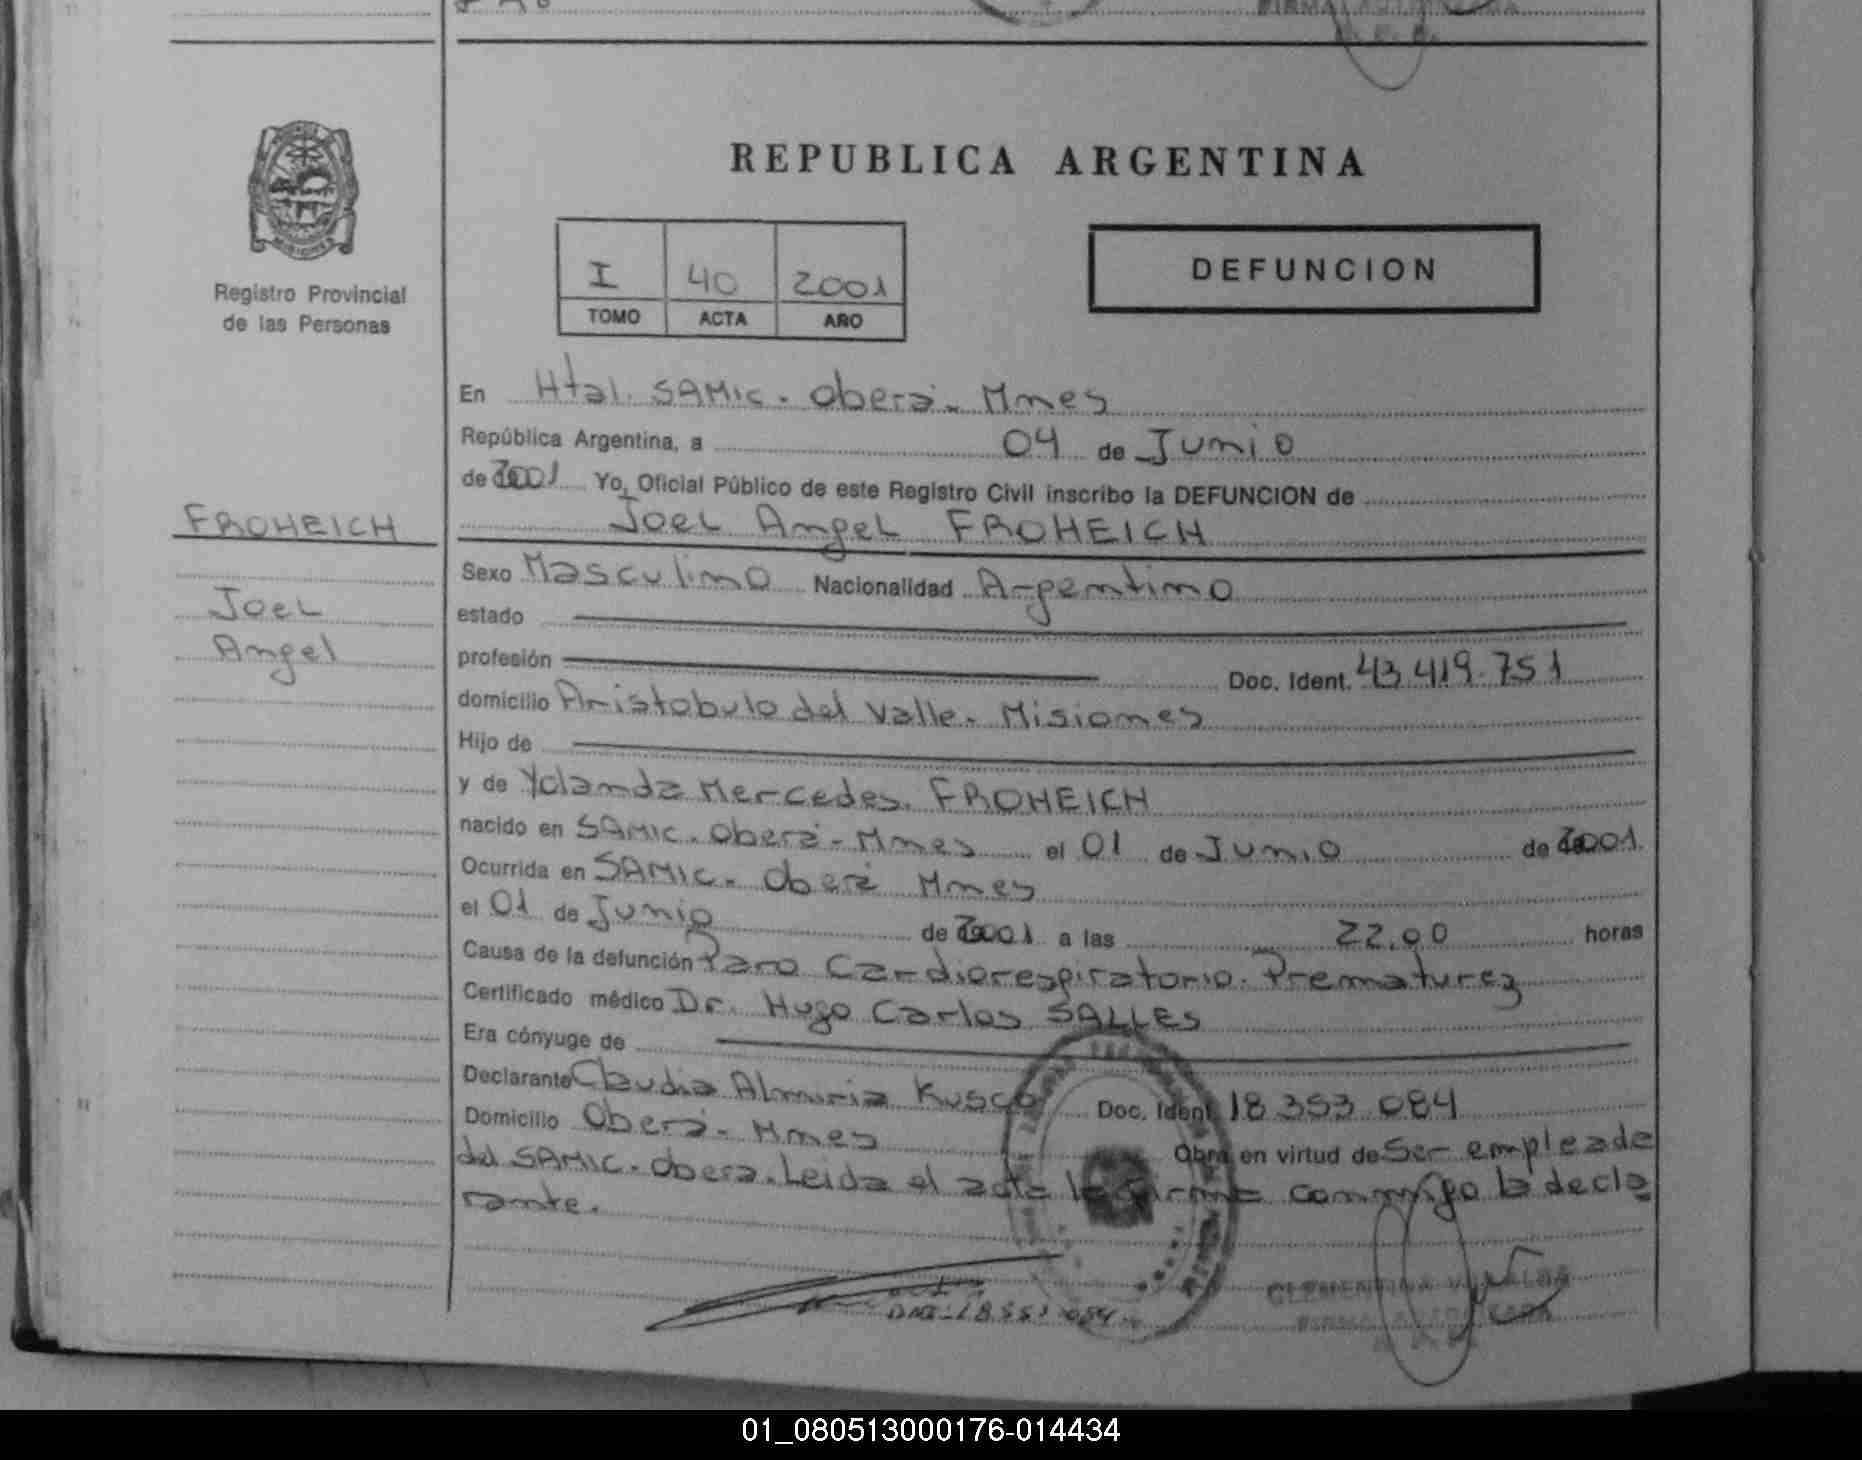 REPUBLICA ARGENTINA
Registro Provincial
de las Personas
I 40 2001
TOMO ACTA AÑO
DEFUNCION
FROHEICH
Joel
Angel
En Htal. SAMIC. Oberá. Mnes
República Argentina, a 04 de Junio
de 2001 Yo, Oficial Público de este Registro Civil inscribo la DEFUNCION de
Joel Angel FROHEICH
Sexo Masculino Nacionalidad Argentino
estado
profesión Doc. Ident. 43.419.751
domicilio Aristobulo del Valle. Misiones
Hijo de
y de Yolanda Mercedes. FROHEICH
nacido en SAMIC. Oberá - Mnes el 01 de Junio de 2001.
Ocurrida en SAMIC. Oberá Mnes
el 01 de Junio de 2001 a las 22.00 horas
Causa de la defunción Paro Cardiorespiratorio. Prematurez
Certificado médico Dr. Hugo Carlos SALLES
Era cónyuge de
Declarante Claudia Kusco Doc. Ident. 18 353 084
Domicilio Oberá - Mnes
Obra en virtud de Ser empleada
del SAMIC. Oberá. Leida el acta la firma conmigo la decla
rante.
01_080513000176-014434